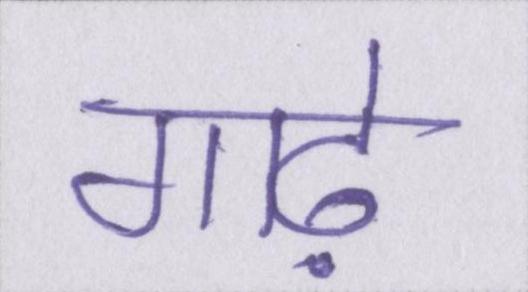 गाढ़े